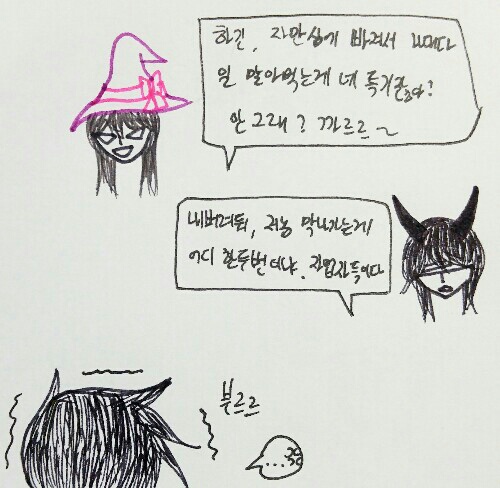 하긴, 자만심에 빠져서 나대다
일 말아먹는게 네 특기잖아?
안 그래? 까르르~
내버려둬, 저놈 막나가는게
어디 한두번이냐. 자업자득이다
부르르
...끙